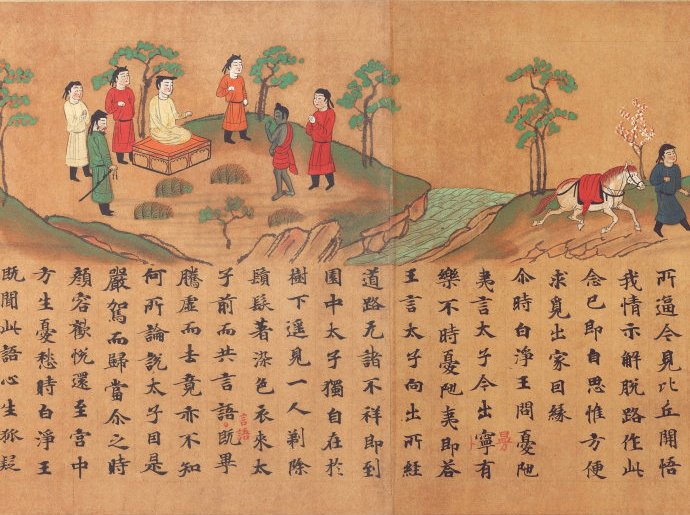 所逼今見比丘開悟
我情示解脱路作此
念已即自思惟方便
求覓出家囙縁
尒時白淨王問憂陁
夷言太子今出寧有
樂不時憂陁夷即荅
王言太子向出所經
道路无諸不祥即到
園中太子獨自在於
樹下遥見一人剃除
鬚髮著染色衣來太
子前而共言語既畢
言語
騰虚而去竟亦不知
何所論説太子囙是
嚴駕而歸當尒之時
顔容歡悦還至宮中
方生憂愁時白淨王
既聞此語心生狐疑